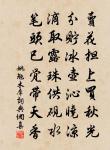 賣花担上買秋光
分冰壺沁晚涼
滴取露珠供硯水
筆頭已覺帶天香
姚勉木犀詩詞典網集